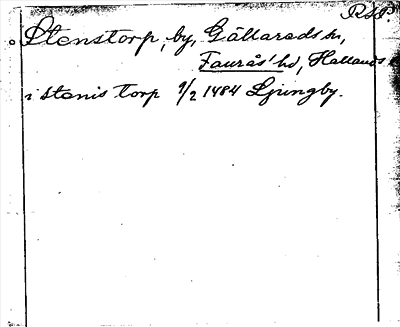 RAP.
Stenstorp, by, Gällareds sn,
Faurås' hd, Hallands
i stenis torp 9/2 1484 Ljungby.